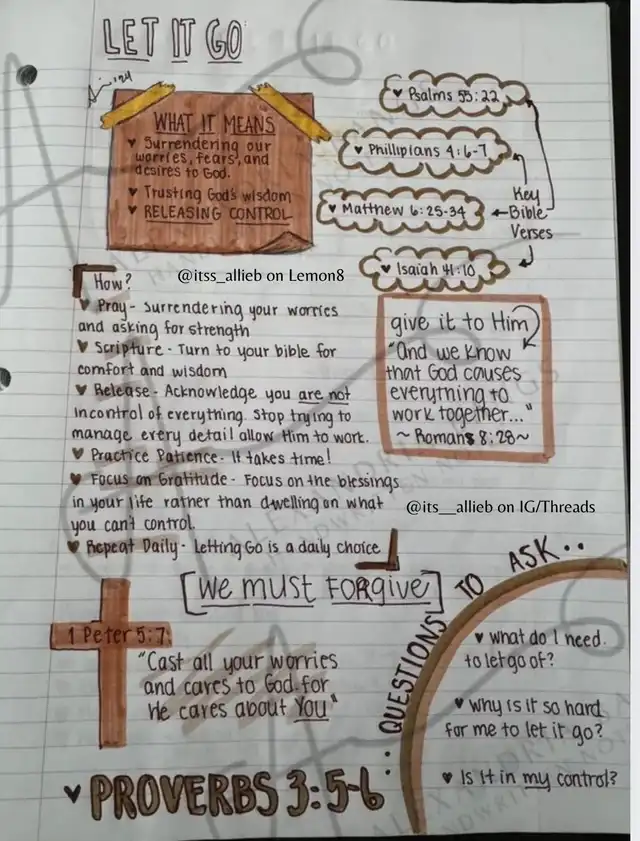 LET IT GO
WHAT IT MEANS
♥ Surrendering our
worries, fears, and
desires to God.
♥ Trusting God's wisdom
♥ RELEASING CONTROL
♥ Psalms 55:22
♥ Phillipians 4:6-7
♥ Matthew 6:25-34
♥ Isaiah 41:10
Key
Bible
Verses
@itss_allieb on Lemon8
How?
♥ Pray - Surrendering your worries
and asking for strength
♥ Scripture - Turn to your bible for
comfort and wisdom
♥ Release - Acknowledge you are not
incontrol of everything. Stop trying to
manage every detail allow Him to work.
♥ Practice Patience - It takes time!
♥ Focus on Gratitude - Focus on the blessings
in your life rather than dwelling on what
you can't control.
♥ Repeat Daily - Letting Go is a daily choice
give it to Him
"And we know
that God causes
everything to
work together..."
~ Romans 8:28 ~
@its__allieb on IG/Threads
[We must FORgive]
1 Peter 5:7
"Cast all your worries
and cares to God for
He cares about You"
♥ PROVERBS 3:5-6
QUESTIONS TO ASK..
♥ what do I need
to let go of?
♥ why is it so hard
for me to let it go?
♥ Is it in my control?